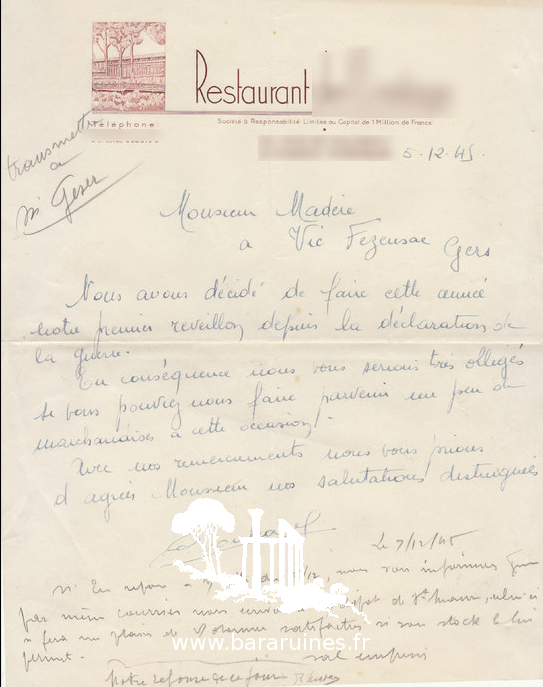 Restaurant
Téléphone
Société à Responsabilité Limitée au Capital de 1 Million de Francs
5-12-45.
transmettre
a
Mr Geser
Monsieur Madère
a Vic Fezensac Gers
Nous avons décidé de faire cette année
notre premier reveillon depuis la déclaration de
la guerre.
En conséquence nous vous serions très obligés
si vous pouvrez nous faire parvenir un peu de
marchandises a cette occasion.
Avec nos remerciements nous vous prions
d agréer Monsieur nos salutations distinguées
Le 7/12/45
En repon a nous vous informons que
par même courrier nous
a fera un plaisir de satisfaction si son stock le lui
permet.
Notre reponse de ce jour
www.bararuines.fr